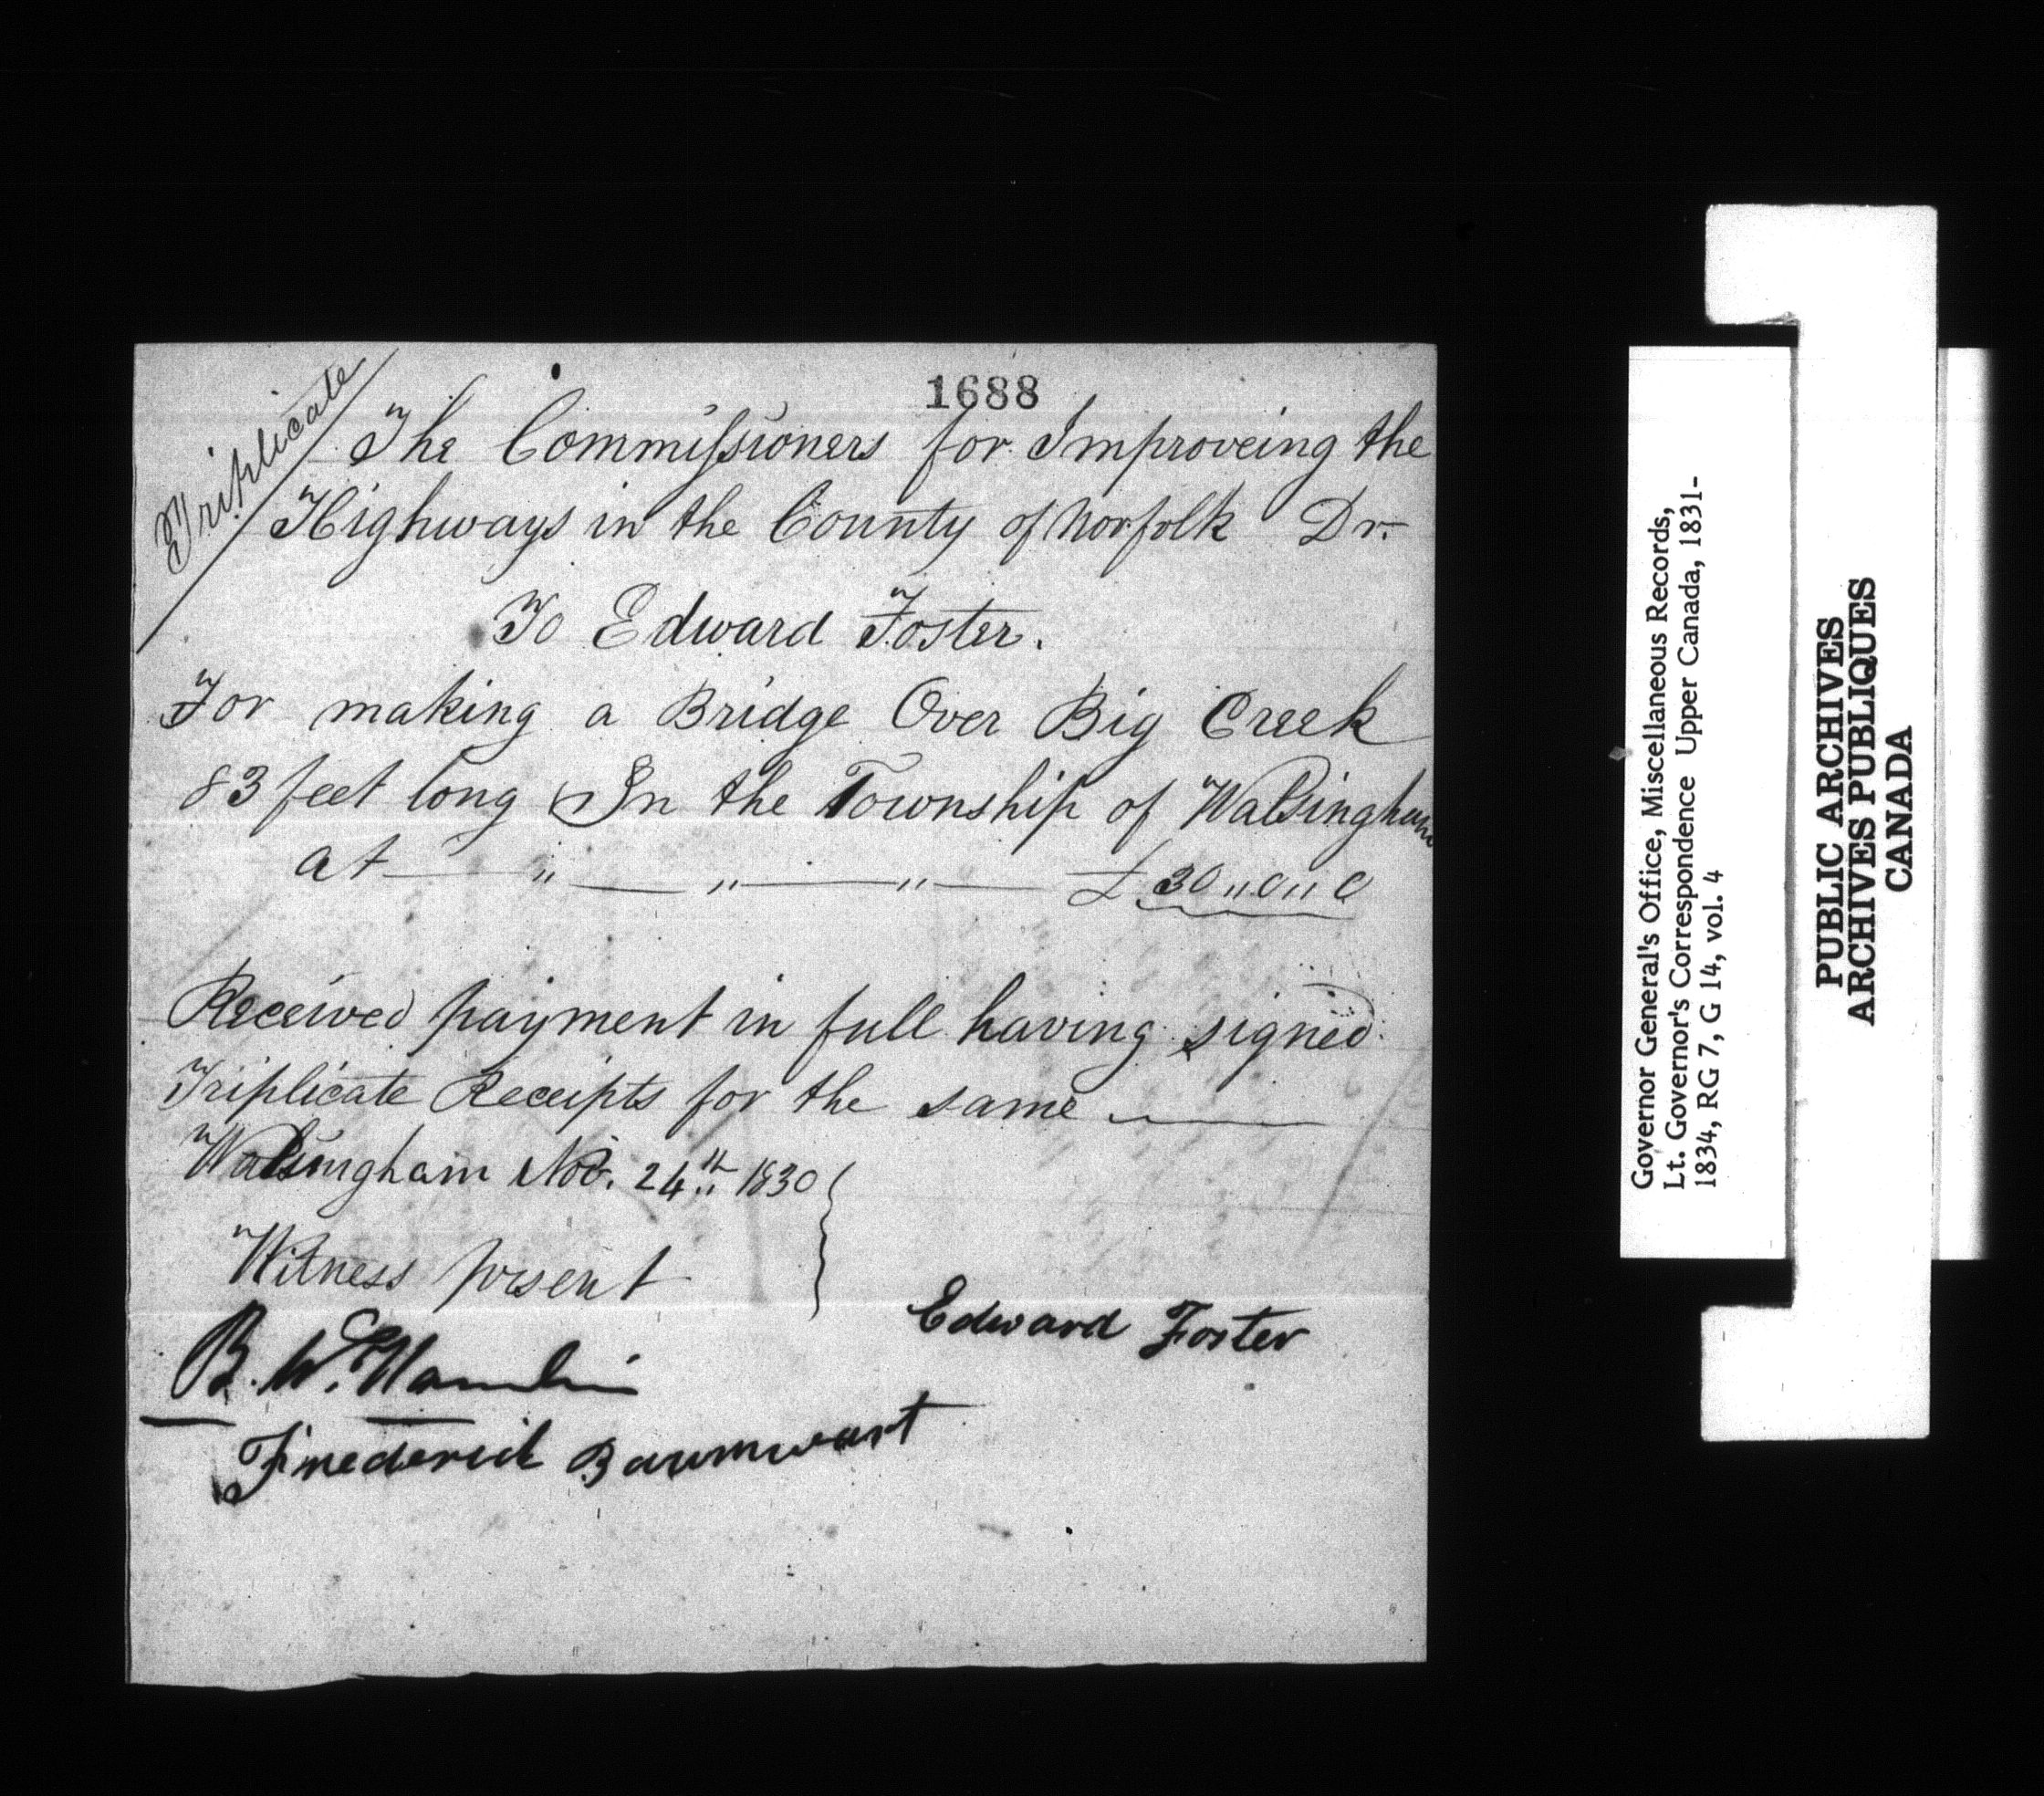 1688
Triplicate
The Commissioners for Improveing the
Highways in the County of Norfolk Dr.
To Edward Foster.
For making a Bridge Over Big Creek
83 feet long In the Township of Walsingham
at — " — " — " — £30,,0,,0
Received payment in full having signed
Triplicate Receipts for the same
Walsingham Nov. 24th 1830
Witness present
Edward Foster
B. W.
Frederick
Governor General's Office, Miscellaneous Records,
Lt. Governor's Correspondence Upper Canada, 1831-
1834, RG 7, G 14, vol. 4
PUBLIC ARCHIVES
ARCHIVES PUBLIQUES
CANADA